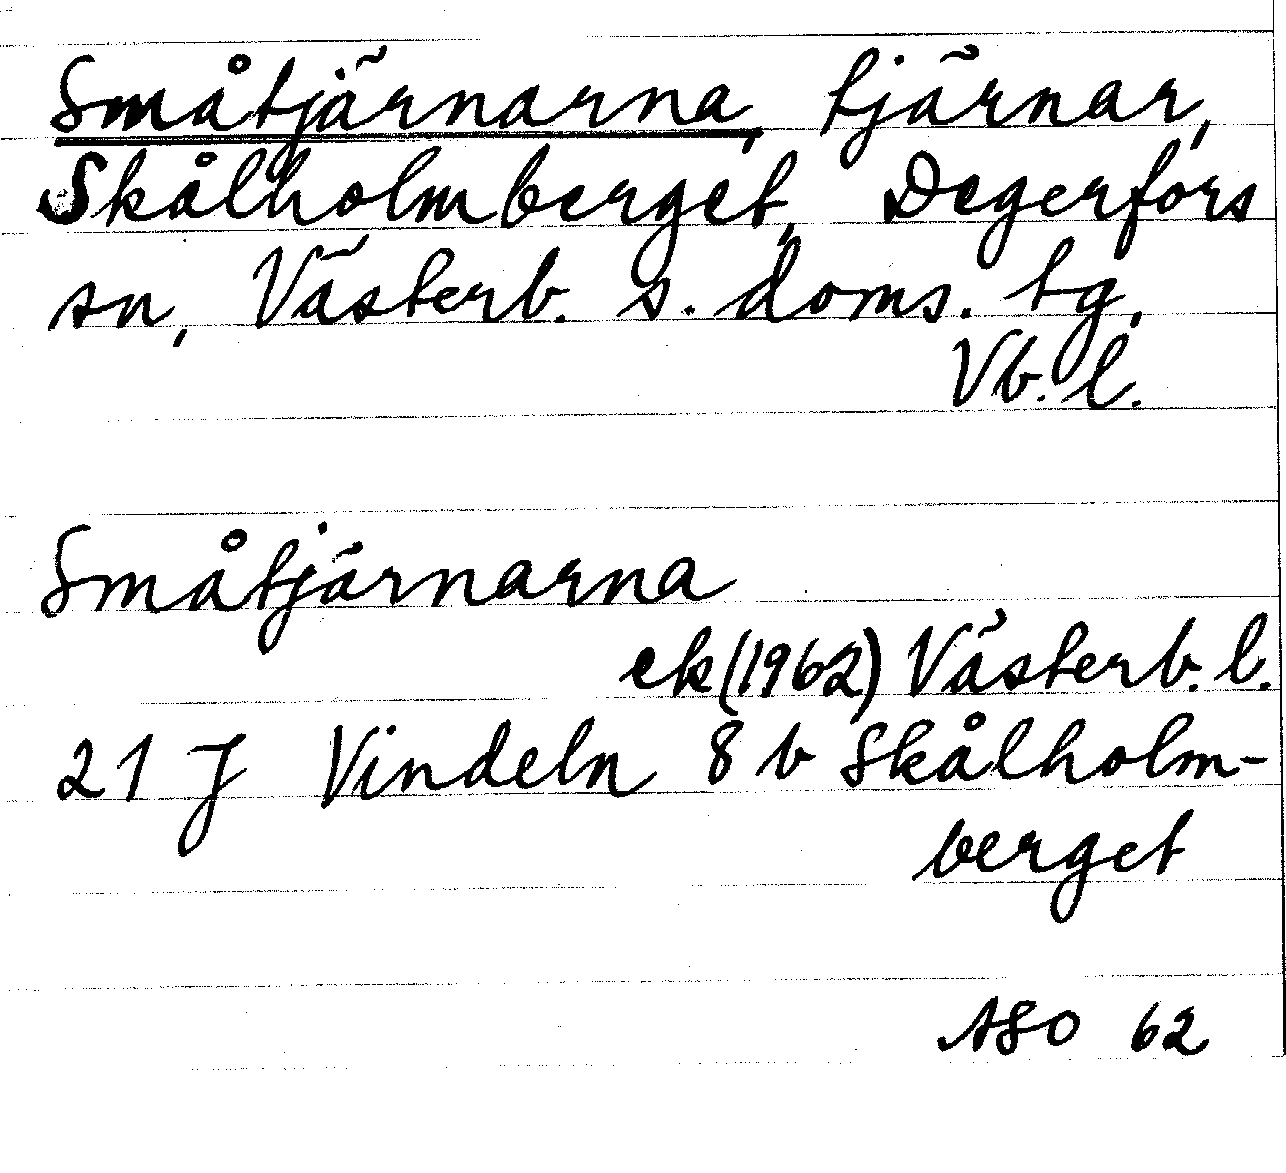 Småtjärnarna, tjärnar,
Skålholmberget, Degerfors
sn, Västerb. s. doms. tg.
Vb. l.
Småtjärnarna
ek (1962) Västerb. l.
21 J Vindeln 8 b Skålholm-
berget
ASO 62